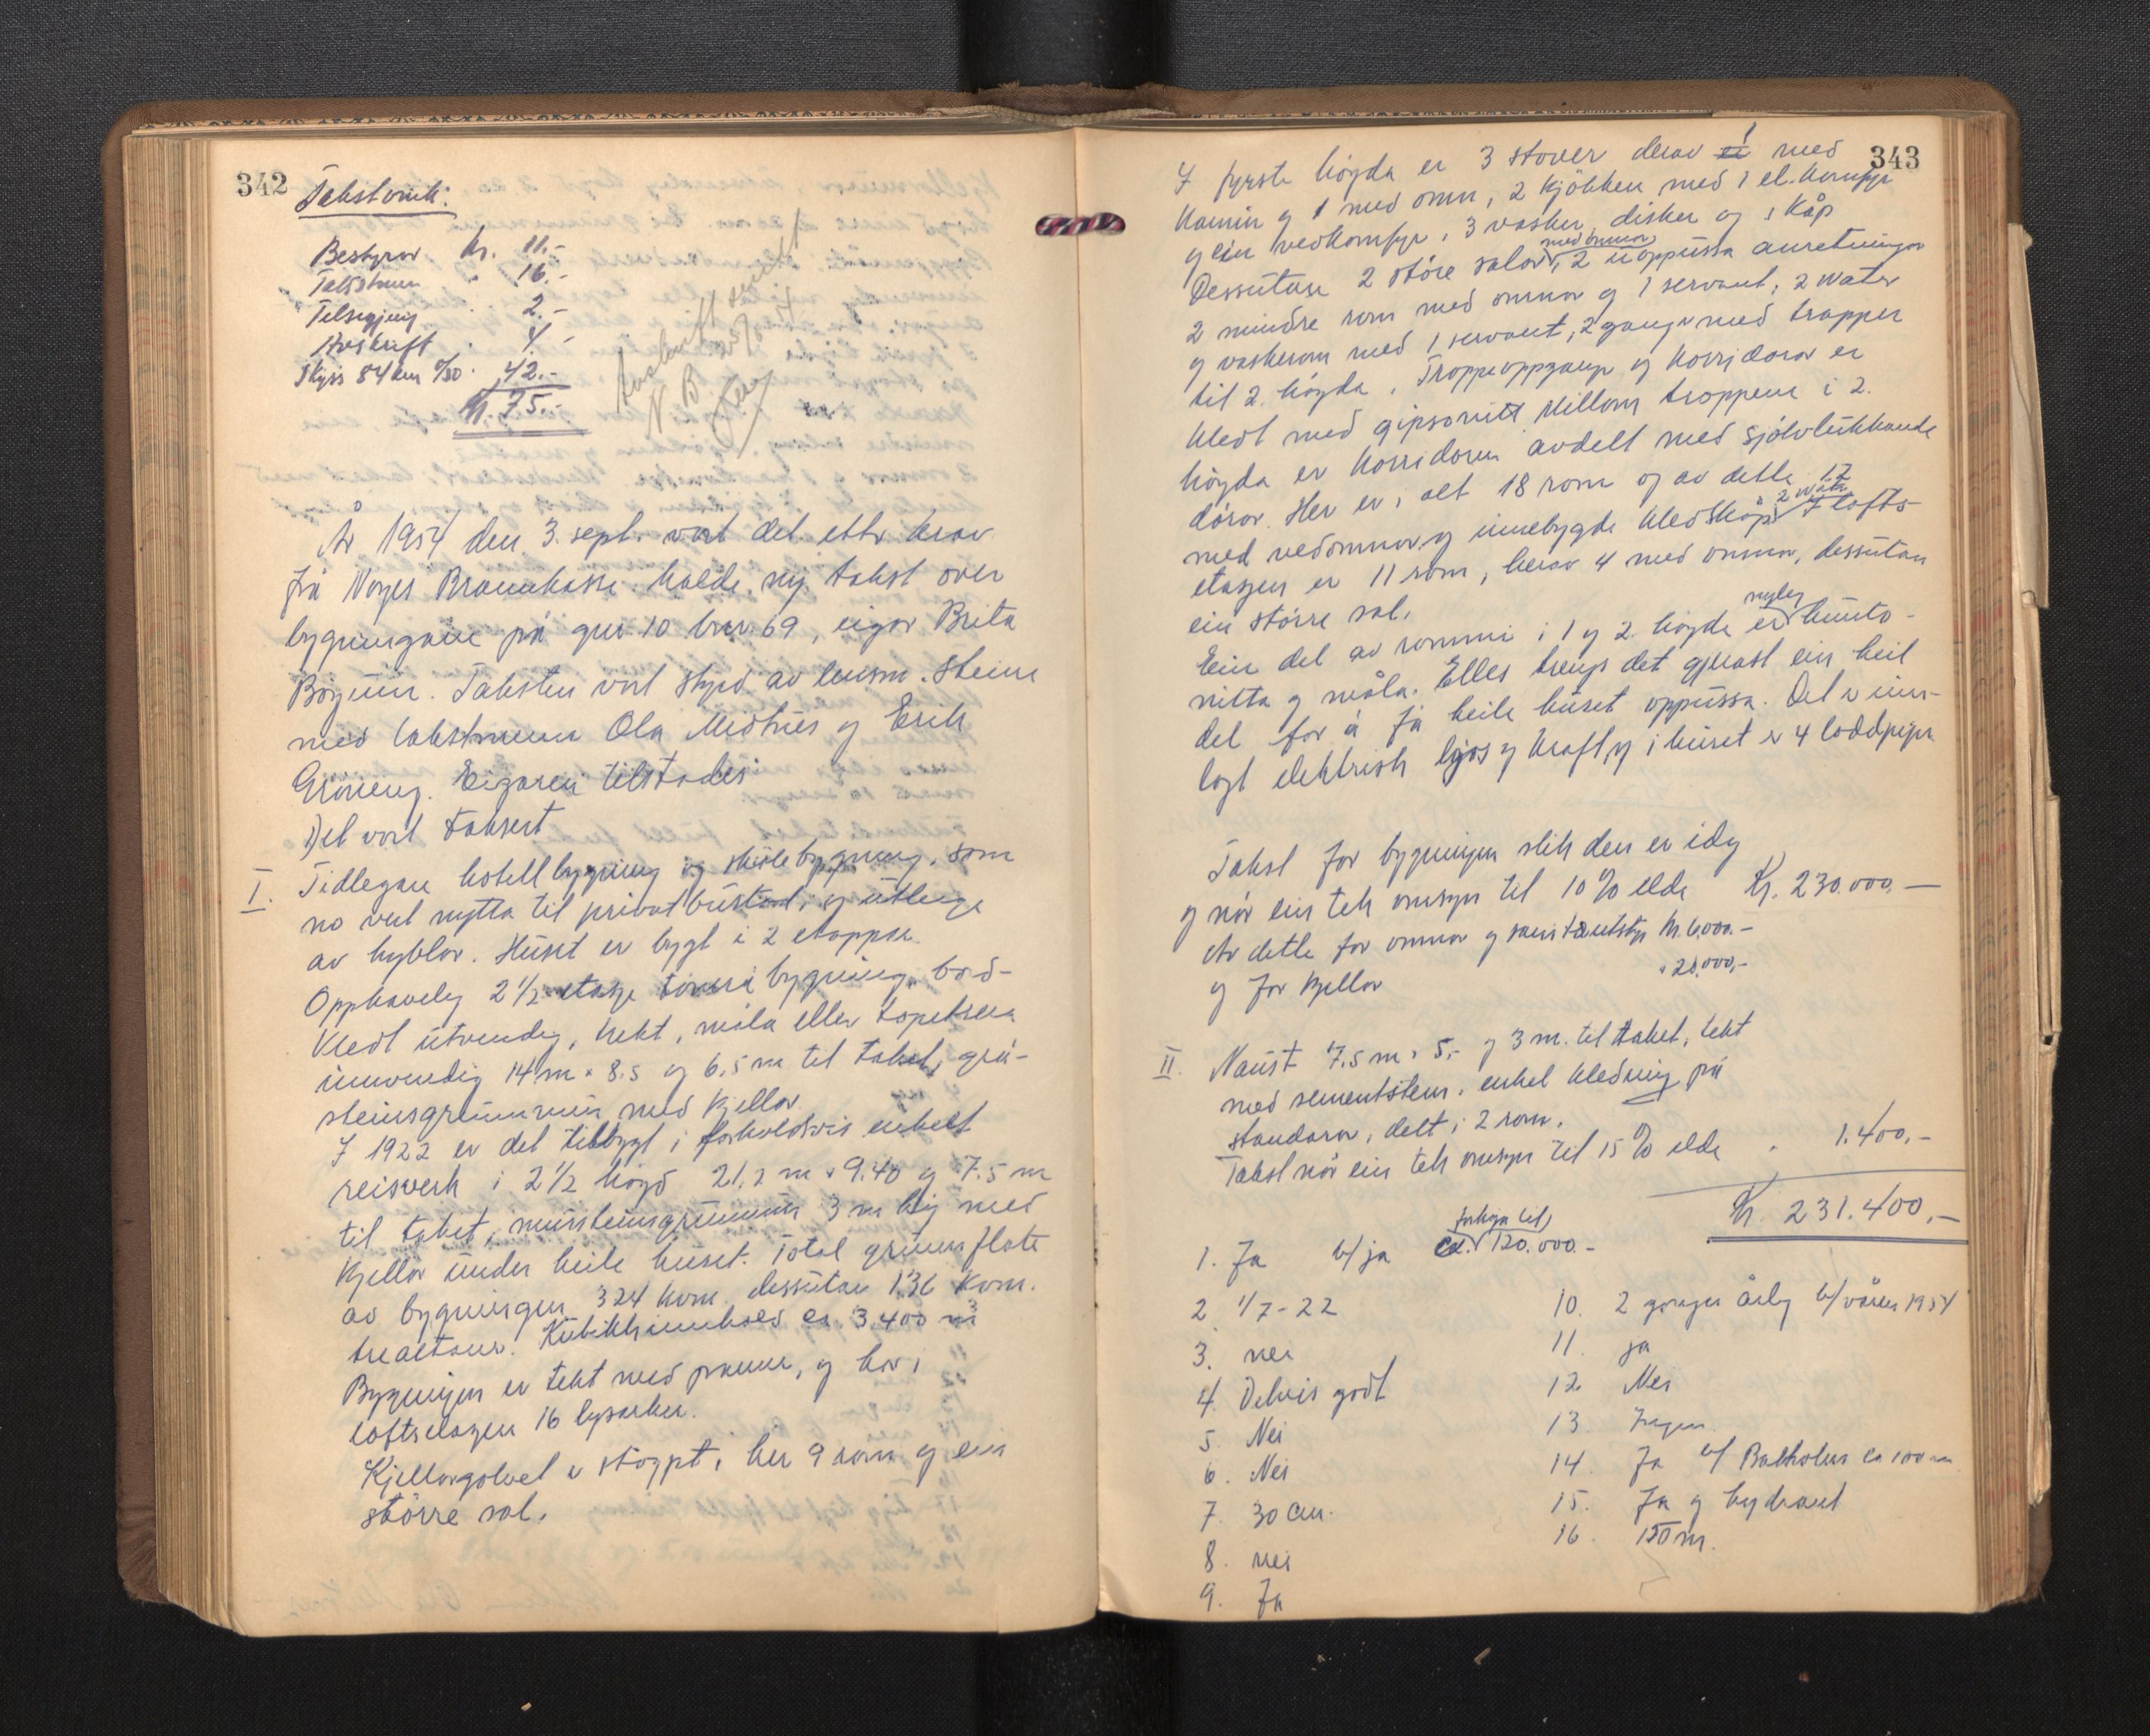 342
Takstvnk:
Bestyrar kr. 11.-
Takstmenn " 16.-
Tilsegjing " 2.-
Avskrift " 4.-
Skyss 84 km 0/50 " 42.-
kr. 75.-
Avskrift sendt
N B
År 1954 den 3. sept. vart det etter krav
frå Norges Brannkasse halde ny takst over
bygningane på gnr. 10 bnr. 69, eigar Brita
Bøgum. Taksten vart styrd av lensm. Steine
med takstmenn Ola Midtnes og Erik
Grøneng. Eigaren tilstades.
Det vart taksert
I. Tidlegare hotellbygning og skulebygning, som
no vert nytta til privatbustad, og utleige
av hyblar. Huset er bygt i 2 etappar.
Opphaveleg 2 1/2 etasje tømra bygning, bord-
kledt utvendig, trekt, måla eller tapetsera
innvendig 14 m × 8.5 og 6,5 m til taket, grå-
steinsgrunnmur med kjellar.
I 1922 er det tilbygt i forholdsvis enkelt
reisverk i 2 1/2 høgd 21,2 m × 9.40 og 7.5 m
til taket, mursteinsgrunnmur 3 m høg med
kjellar under heile huset. Total grunnflate
av bygningen 324 kvm. dessutan 136 kvm.
trealtaner. Kubikkinnhald ca. 3.400 m³
Bygningen er tekt med panner, og har i
loftsetasjen 16 lysarker.
Kjellargolvet er støypt, her 9 rom og ein
større sal.
343
I fyrste høgda er 3 stover derav 1 med
kamin og 1 med omn, 2 kjøkken med 1 el. komfyr
og ein vedkomfyr, 3 vasker, disker og skåp
Dessutan 2 store salar med omnar, 2 uoppussa anretningar
2 mindre rom med omnar og 1 servant, 2 water
og vaskerom med 1 servant, 2 gangar med trapper
til 2. høgda. Trappeoppgangar og korridorar er
kledt med gipsonitt. Millom trappene i 2.
høgda er korridoren avdelt med sjølvlukkande
dører. Her er i alt 18 rom og av dette 12
med vedomnar og innebygde kledskåp, 2 water. I lofts-
etasjen er 11 rom, herav 4 med omnar, dessutan
ein større sal.
Ein del av rommi i 1 og 2. høgda er nyleg hunto-
nitta og måla. Elles trengs det gjerast ein heil
del for å få heile huset oppussa. Det er inn-
lagt elektrisk ljos og kraft, og i huset er 4 loddpiper
Takst for bygningen slik den er idag
og når ein tek omsyn til 10 % elde Kr. 230.000.—
Av dette for omnar og sanitærutstyr kr. 6.000.-
og for kjellar " 20.000,-
II. Naust 7.5 m × 5,- og 3 m. til taket, tekt
med sementstein, enkel kledning på
standarar, delt i 2 rom.
Takst når ein tek omsyn til 15 % elde " 1.400,-
Kr. 231.400,-
1. Ja b/ ja forhøya til 120.000.-
2 1/7-22
3. nei
4. Delvis godt
5. Nei
6. Nei
7. 30 cm.
8. nei
9. Ja
10. 2 gonger årleg b/ våren 1954
11. ja
12 Nei
13. Ingen
14. Ja b/ Balholm ca 100 m
15. Ja og hydrant
16. 150 m.